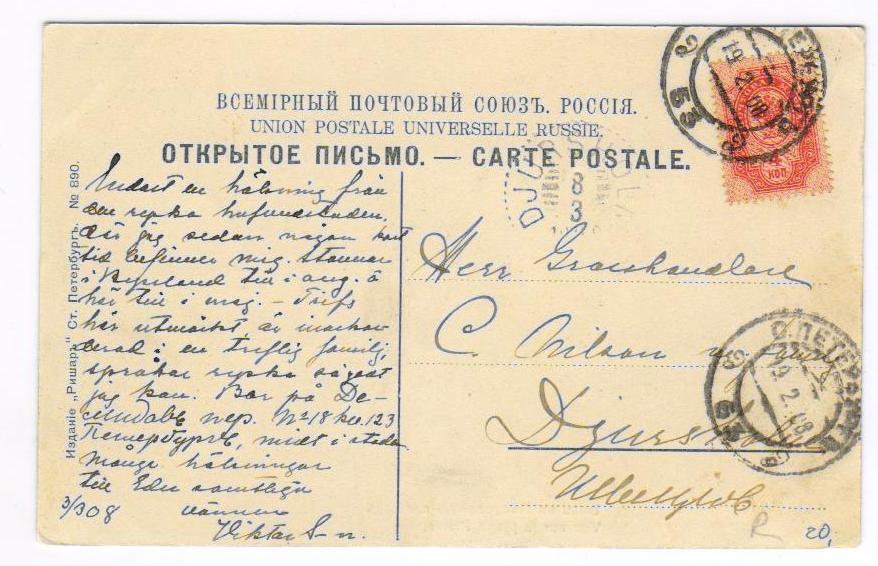 ВСЕМІРНЫЙ ПОЧТОВЫЙ СОЮЗЪ. РОССІЯ.
UNION POSTALE UNIVERSELLE RUSSIE.
ОТКРЫТОЕ ПИСЬМО. — CARTE POSTALE.
Изданіе „Ришаръ“ Ст. Петербургъ. № 890.
Endast en hälsning från
den ryska hufvudstaden,
där jag sedan någon kort
tid befinner mig. Stannar
i Ryssland till i aug. å
här till i maj. – Trifs
här utmärkt, är inackor
derad i en treflig familj,
språkar ryska så godt
jag kan. Bor på Де-
мидовъ пер. № 18 кв. 123
Петербургъ, midt i staden
Många hälsningar
till Eder samtliga
vänner
Viktor S-n.
3/3 08
Herr Grosshandlare
C. Nilson
Djursholm
Швецiя
4
КОП
19 2 08
53
DJURSHOLM
8
3
С.ПЕТЕРБУРГЪ
19. 2. 08
53
R
20,